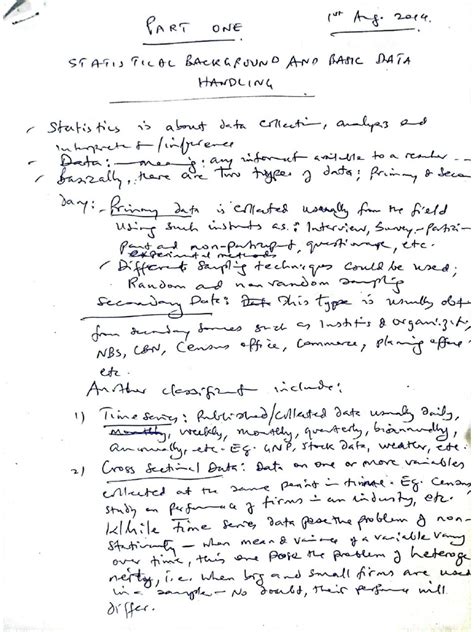 PART ONE
1st Aug. 2014.
STATISTICAL BACKGROUND AND BASIC DATA
HANDLING
Statistics is about data collection, analyses and
interpretatn/inference
Data: — meaning: any informatn available to a researcher
Basically, there are two types of data: Primary & Secon
dary: - Primary data is collected usually from the field
using such instrmts as: Interview, Survey, Partici-
pant and non-participant, questionnaire, etc.
experimental methods
Different sampling techniques could be used;
Random and non random sampling
Secondary Data: This type is usually obt
from secondary sources such as Institns & organizatn,
NBS, CBN, Census office, Commerce, planning office
etc.
Another classificatn include:
1) Time series: Published/collected data usually daily,
monthly, weekly, monthly, quarterly, biannually,
Annually, etc. Eg. GNP, stock data, weather, etc.
2) Cross Sectional Data: Data on one or more variables
collected at the same point in time. Eg. Census
study on performance of firms in an industry, etc.
While Time series data pose the problem of non-
stationarity — when mean & variance of a variable vary
over time, this one pose the problem of heteroge
neity, i.e. when big and small firms are used
in a sample - No doubt, their perfmance will
differ.